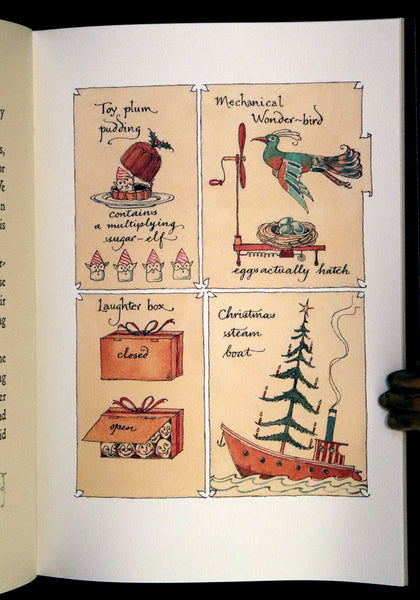 Toy plum
pudding
contains
a multiplying
sugar-elf
Mechanical
Wonder-bird
eggs actually hatch
Laughter box
closed
open
Christmas
steam
boat